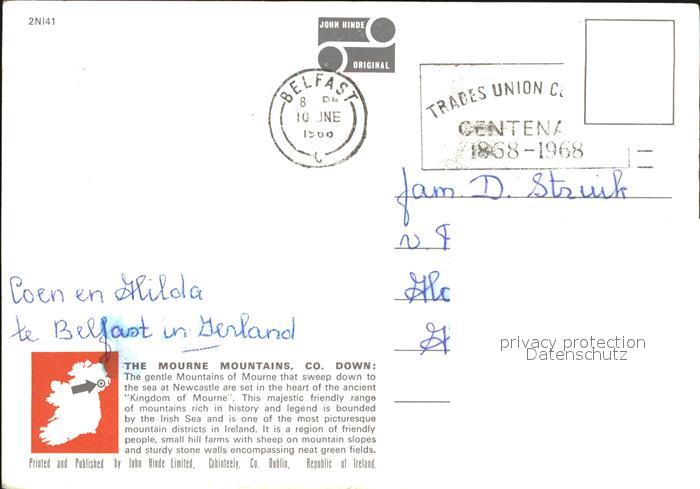 2NI41
JOHN HINDE
ORIGINAL
BELFAST
8 PM
10 JNE
1968
C
TRADES UNION
CENTENA
1868-1968
fam. D. Struik
v
Coen en Hilda
te Belfast in Ierland
privacy protection
Datenschutz
THE MOURNE MOUNTAINS, CO. DOWN:
The gentle Mountains of Mourne that sweep down to
the sea at Newcastle are set in the heart of the ancient
"Kingdom of Mourne". This majestic friendly range
of mountains rich in history and legend is bounded
by the Irish Sea and is one of the most picturesque
mountain districts in Ireland. It is a region of friendly
people, small hill farms with sheep on mountain slopes
and sturdy stone walls encompassing neat green fields.
Printed and Published by John Hinde Limited, Cabinteely, Co. Dublin, Republic of Ireland.